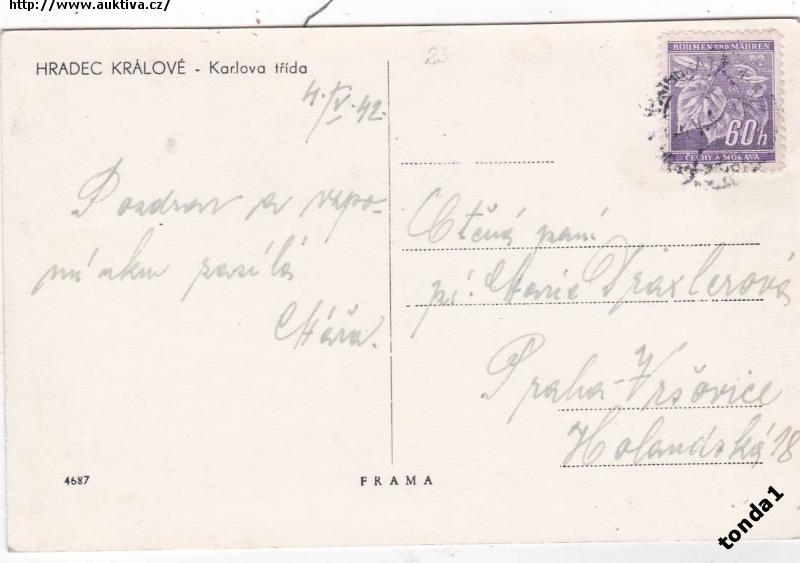 http://www.auktiva.cz/
HRADEC KRÁLOVÉ - Karlova třída
4./IV. 42.
Pozdrav a vzpo-
mínku zasílá
Máňa.
23
BÖHMEN UND MÄHREN
60h
ČECHY A MORAVA
Ctěná paní
pí. Marie Dräxlerová
Praha-Vršovice
Holandská 18
4687
FRAMA
tonda1